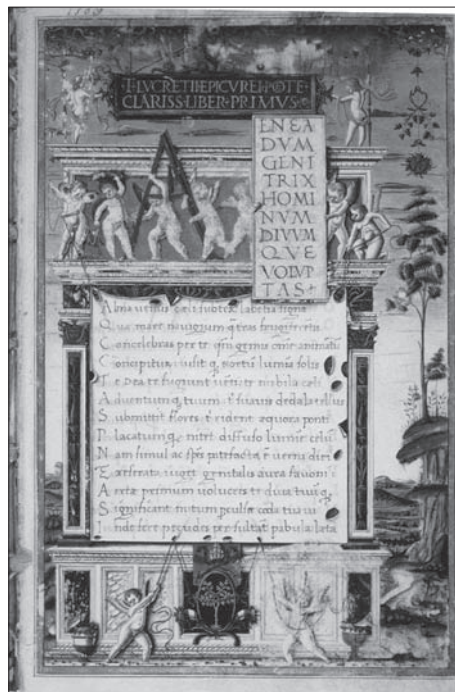 T·LVCRETII·EPICVREI·POTE·
CLARISS·LIBER·PRIMVS·
A
ENEA
DVM
GENI
TRIX
HOMI
NVM
DIVVM
QVE
VOLVP
TAS
Alma uenus signa
Quæ mare
Concelebras per te genus omne animātū
Concipitur uisitq; lumina solis
Te Dea te fugiunt uēti te nubila cæli
Aduentumq; tuum t suauis dedala tellus
Submittit flores t rident æquora ponti
Placatumq; nitet diffuso lumine
Nam simul ac patefacta ē
Et reserata uiget genitalis aura fauoni
Aeriæ primum uolucres te diua tuūq;
Significant tua ui
Inde feræ pecudes per sultāt pabula læta